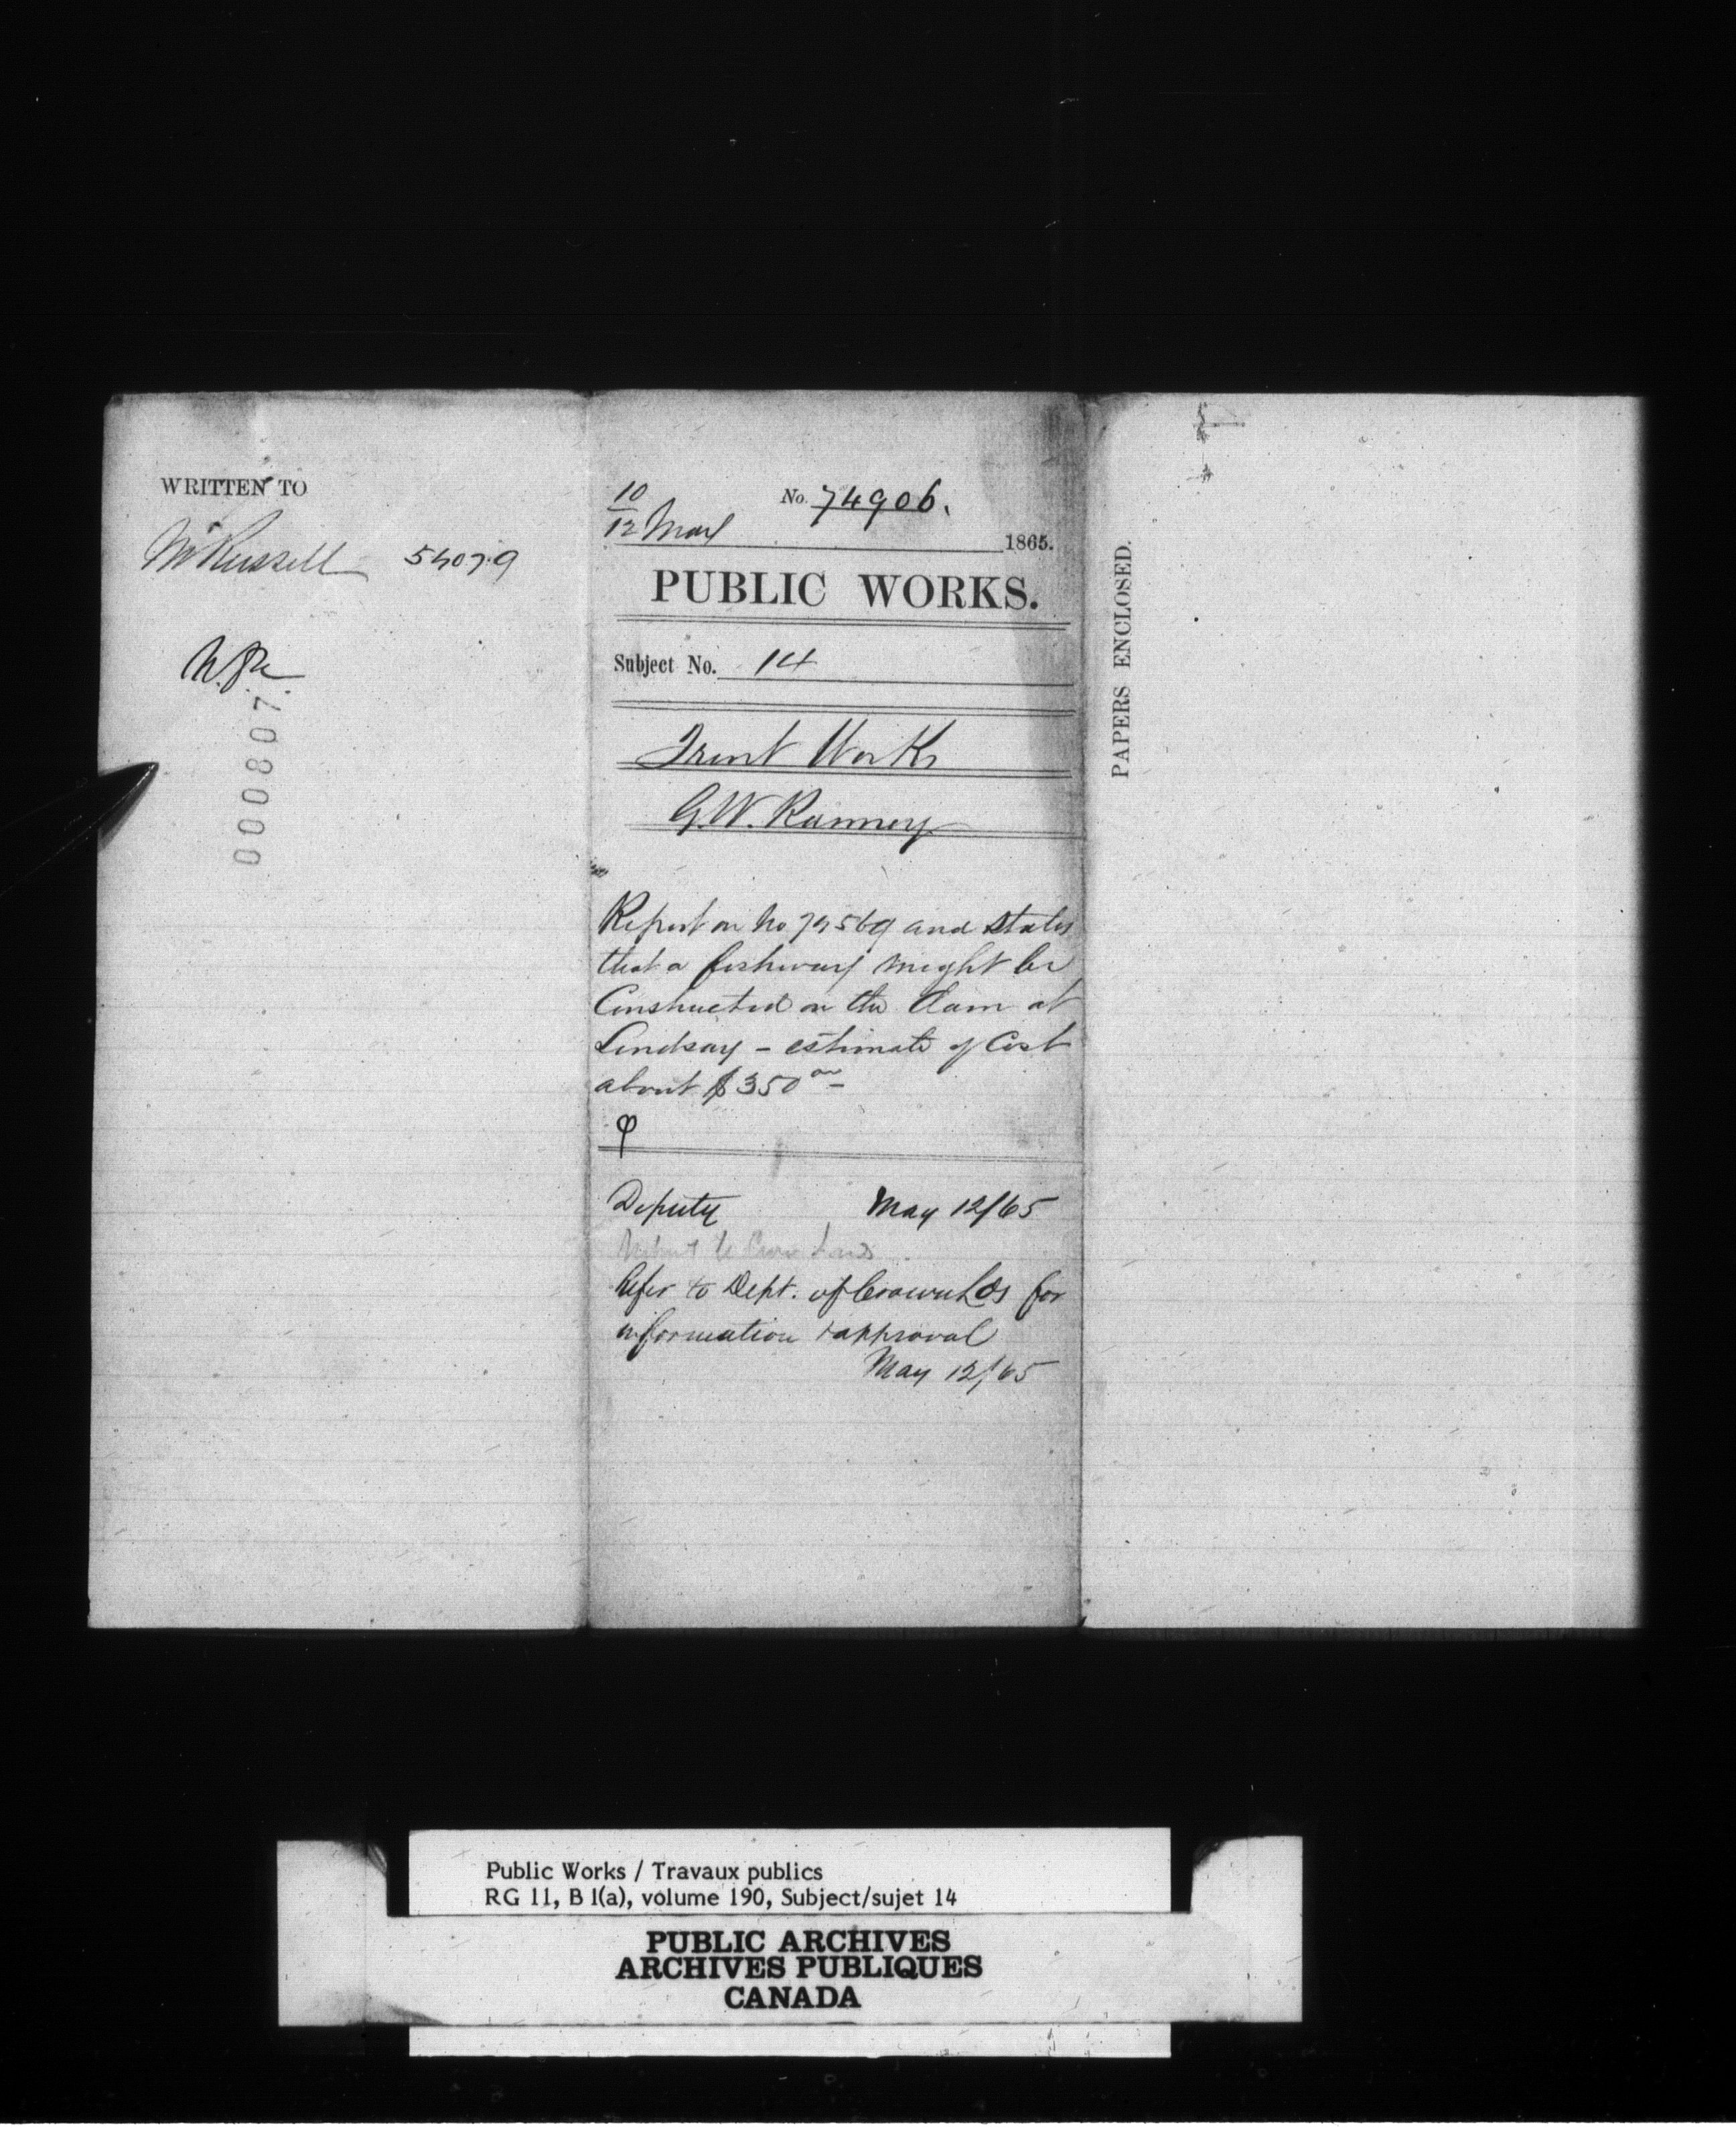 WRITTEN TO
Mr Russell 54079
000807
10/12 May
No. 74906.
1865.
PUBLIC WORKS.
Subject No. 14
Trent Works
G.W. Ranney
Report on No 74569 and states
that a fishway might be
Constructed on the dam at
Lindsay – estimate of Cost
about $350 00 –
Deputy May 12/65
Refer to Dept. of Crown Lds for
information & approval
May 12/65
PAPERS ENCLOSED.
Public Works / Travaux publics
RG 11, B 1(a), volume 190, Subject/sujet 14
PUBLIC ARCHIVES
ARCHIVES PUBLIQUES
CANADA